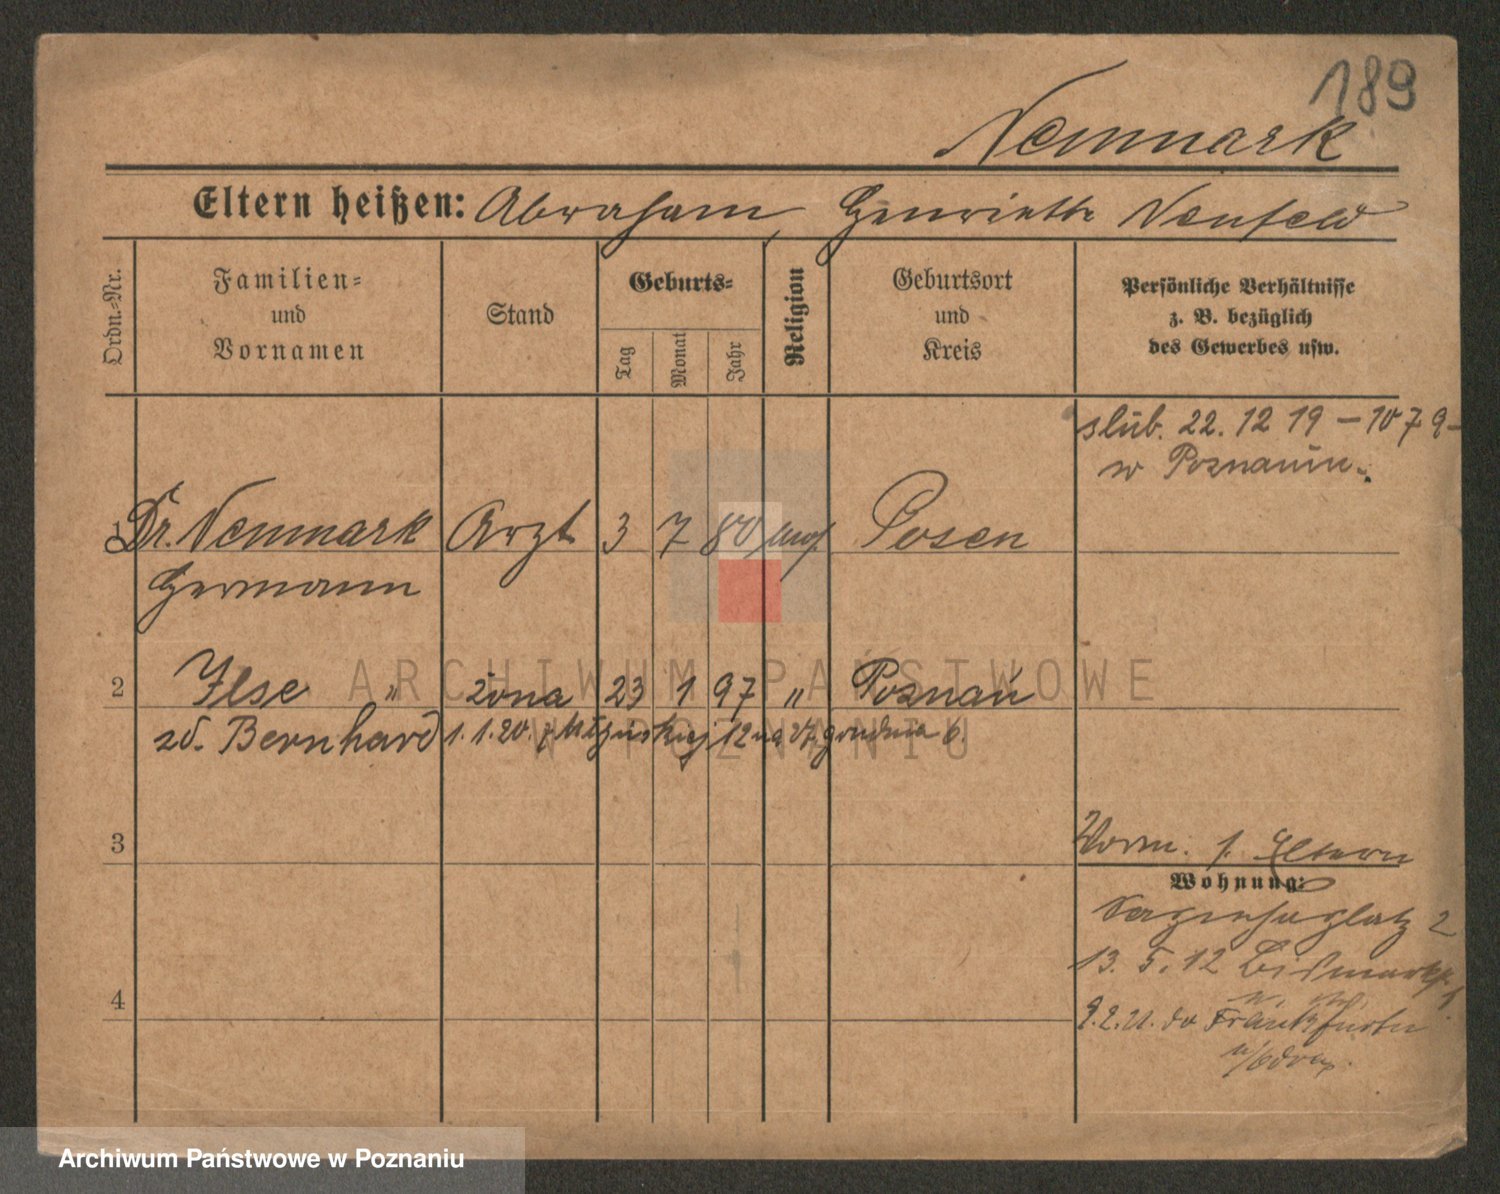 189
Neumark
Eltern heißen: Abraham, Henriette Neufeld
Ordn.-Nr.
Familien-
und
Vornamen
Stand
Geburts-
Tag
Monat
Jahr
Religion
Geburtsort
und
Kreis
Persönliche Verhältnisse
z. B. bezüglich
des Gewerbes usw.
slub. 22. 12 19 – 1079 –
w Poznaniu.
1 Dr. Neumark Arzt 3 7 80 mos. Posen
Hermann
2 Ilse " żona 23 1 97 " Poznań
zd. Bernhard 1. 1. 20. 12 na 27 grudnia 6.
3
Vorm. s. Eltern
Wohnung:
Sapiehaplatz 2
13. 5. 12 Bismarckstr. 1.
4
9.2.21. do Frankfurtu
n/Odrą.
ARCHIWUM PAŃSTWOWE
W POZNANIU
Archiwum Państwowe w Poznaniu